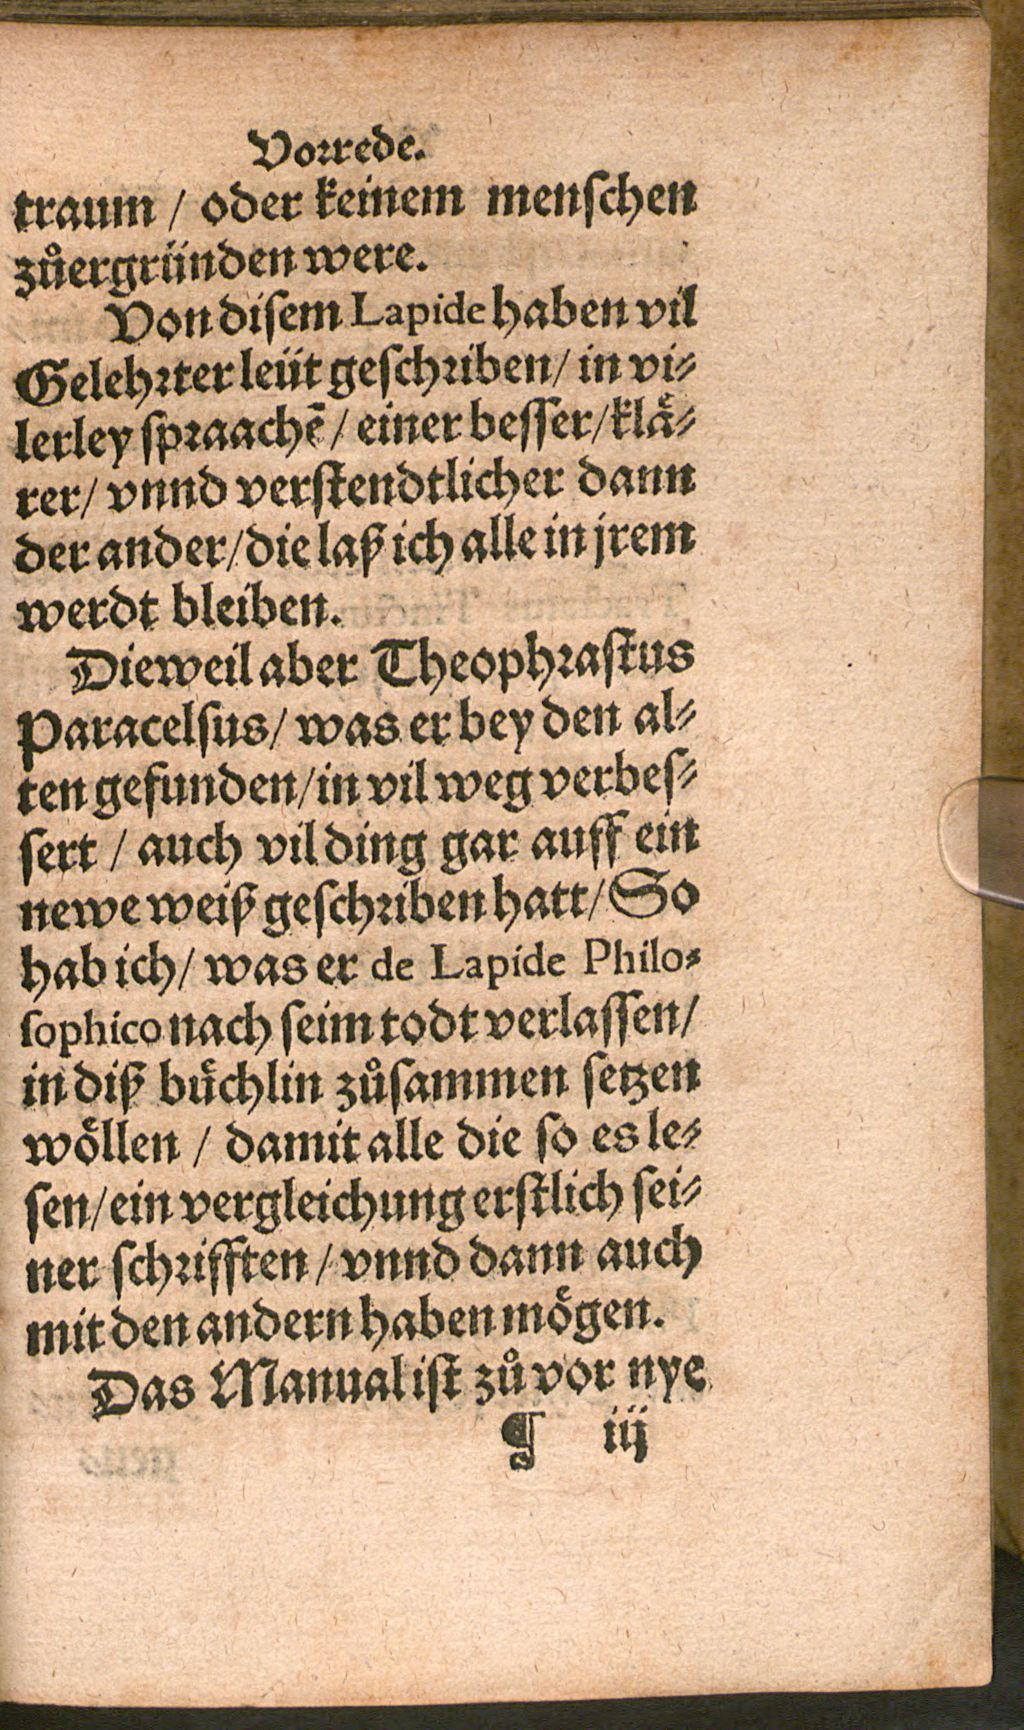 Vorrede.
traum / oder keinem menschen
zuͦergründen were.
Von disem Lapide haben vil
Gelehrter leüt geschriben / in vi⸗
lerley spraachē / einer besser / klaͤ⸗
rer / vnnd verstendtlicher dann
der ander / die laß ich alle in jrem
werdt bleiben.
Dieweil aber Theophrastus
Paracelsus / was er bey den al⸗
ten gefunden / in vil weg verbes⸗
sert / auch vil ding gar auff ein
newe weiß geschriben hatt / So
hab ich / was er de Lapide Philo⸗
sophico nach seim todt verlassen /
in diß buͤchlin zuͦsammen setzen
woͤllen / damit alle die so es le⸗
sen / ein vergleichung erstlich sei⸗
ner schrifften / vnnd dann auch
mit den andern haben moͤgen.
Das Manual ist zuͦ vor nye
¶ iij